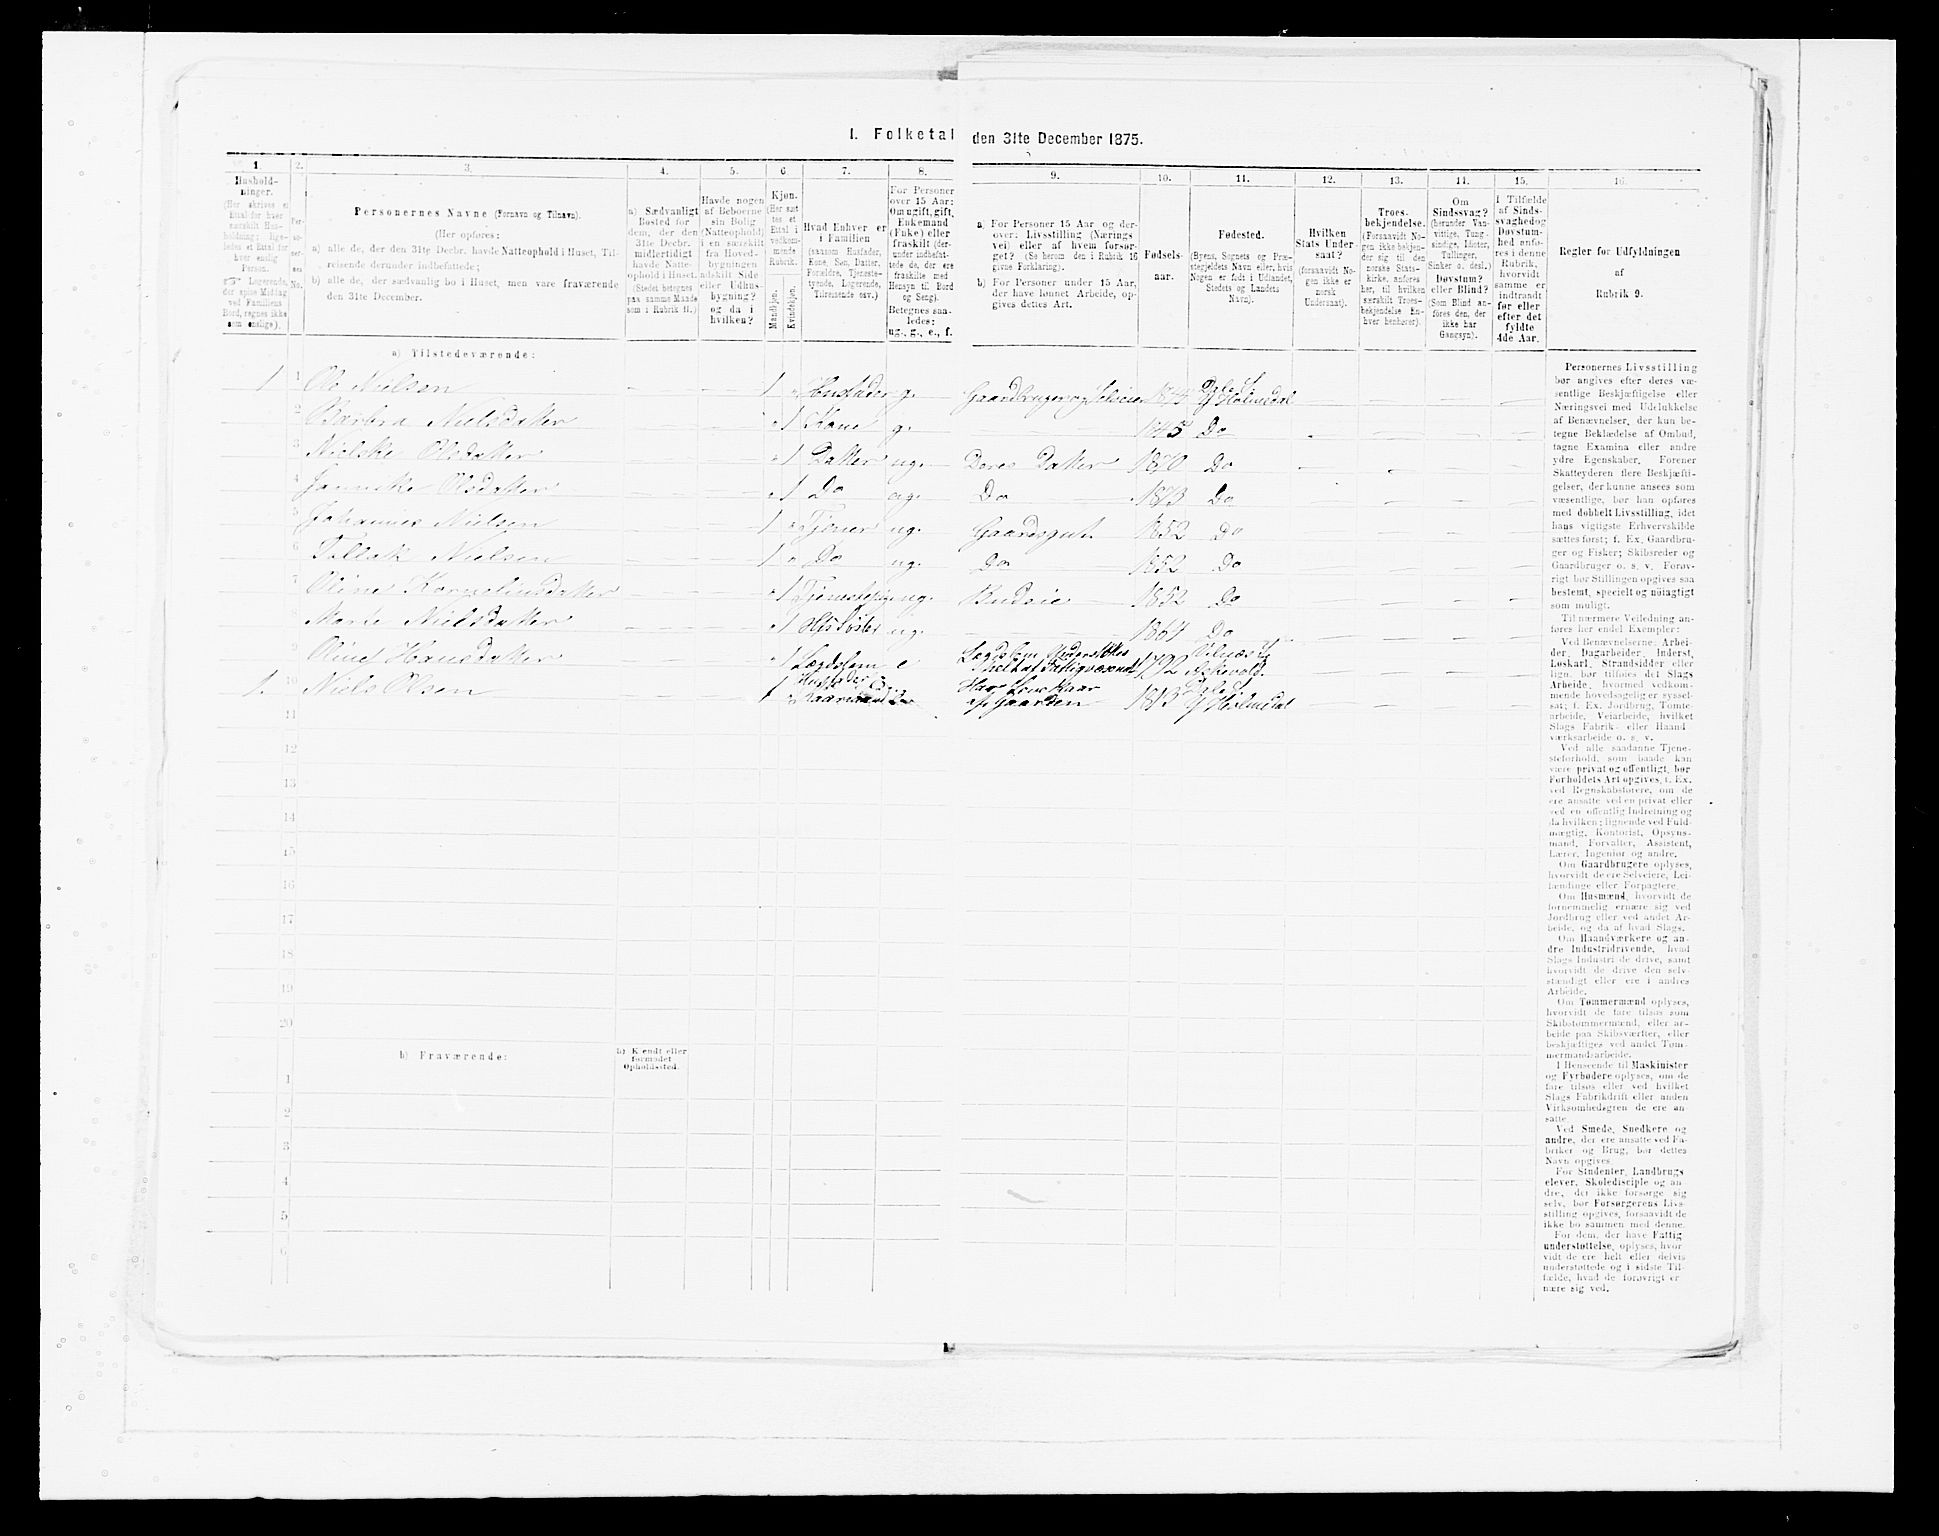 I. Folketal den 31te December 1875.
1 2. 3. 4. 5. 6. 7. 8. 9. 10. 11. 12. 13. 14. 15. 16.
Hushold-
ninger.
(Her skrives et
Ettal for hver
særskilt Hus-
holdning; lige-
ledes et Ettal for
hver enslig
Person.
Logerende,
der spise Middag
ved Familiens
Bord, regnes ikke
som enslige).
Per-
so-
ner-
nes
No.
Personernes Navne (Fornavn og Tilnavn).
(Her opføres:
a) alle de, der den 31te Decbr. havde Natteophold i Huset, Til-
reisende derunder indbefattede;
b) alle de, der sædvanlig bo i Huset, men vare fraværende
den 31te December.
a) Sædvanligt
Bosted for
dem, der den
31te Decbr.
midlertidigt
havde Natte-
ophold i Huset.
(Stedet betegnes
paa samme Maade
som i Rubrik 11.)
Havde nogen
af Beboerne
sin Bolig
(Natteophold)
i en særskilt
fra Hoved-
bygningen
adskilt Side
eller Udhus-
bygning?
og da i
hvilken?
Kjøn.
(Her sæt
tes et
Ettal i
vedkom-
mende
Rubrik.
Mandkjøn.
Kvindekjøn.
Hvad Enhver er
i Familien
(saasom Husfader,
Kone, Søn, Datter,
Forældre, Tjeneste-
tyende, Logerende,
Tilreisende osv.)
For Personer
over 15 Aar:
Om ugift, gift,
Enkemand
(Enke) eller
fraskilt (der-
under indbefat-
tede de, der ere
fraskilte med
Hensyn til Bord
og Seng).
Betegnes saa-
ledes:
ug., g., e., f.
a) For Personer 15 Aar og der-
over: Livsstilling (Nærings
vei) eller af hvem forsør-
get? (Se herom den i Rubrik 16
givne Forklaring).
b) For Personer under 15 Aar,
der have lønnet Arbeide, op-
gives dettes Art.
Fødsels-
aar.
Fødested.
(Byens, Sognets og Præ-
stegjeldets Navn eller, hvis
Nogen er født i Udlandet,
Stedets og Landets
Navn).
Hvilken
Stats Under-
saat?
(forsaavidt No-
gen ikke er
norsk
Undersaat).
Troes-
bekjendelse.
(Forsaavidt No-
gen ikke bekjen-
der sig til den
norske Stats-
kirke, anføres
her, til hvilken
særskilt Troes-
bekjendelse En-
hver henhører).
Om
Sindssvag?
(herunder Van-
vittige, Tung-
sindige, Idioter,
Tullinger,
Sinker o. desl.)
Døvstum?
eller Blind?
(Som Blind an-
føres den, der
ikke har
Gangsyn).
I Tilfælde
af Sinds-
svaghed og
Døvstum-
hed anfø-
res i denne
Rubrik,
hvorvidt
samme er
indtraadt
før eller
efter det
fyldte
4de Aar.
Regler for Udfyldningen
af
Rubrik 9.
a) Tilstedeværende:
1 1 Ole Nielsen 1 Husfader g. Gaardbruger og Selveier Dale S. Holmedal
2 Barbra Nielsdatter 1 Kone g. 1845 Do
3 Nielske Olsdatter 1 Datter ug. Deres Datter 1870 Do
4 Jannike Olsdatter 1 Do ug. Do 1873 Do
5 Johannes Nielsen 1 Tjener ug. Gaardsgut 1852 Do
6 Tillak Nielsen 1 Do ug. Do 1852 Do
7 Oline Korneliusdatter 1 ug. Budeie 1852 Do
Marte Nielsdatter 1 ug. 1864 Do
9 Hansdatter 1 Lægdslem e Lægdslem Understøttes helt af Fattigvæsenet 1792 Askevold.
1. 10 Niels Olsen 1 Husfader Kaarmand Har Kaar af Gaarden 1813 Dale S. Holmedal
11
12
13
14
15
16
17
18
19
20
b) Fraværende:
b) Kjendt eller
formodet
Opholdssted.
1
2
3
4
5
6
Personernes Livsstilling
bør angives efter deres væ-
sentlige Beskjæftigelse eller
Næringsvei med Udelukkelse
af Benævnelser, der kun be-
tegne Beklædelse af Ombud,
tagne Examina eller andre
ydre Egenskaber. Forener
Skatteyderen flere Beskjæfti-
gelser, der kunne ansees som
væsentlige, bør han opføres
med dobbelt Livsstilling, idet
hans vigtigste Erhvervskilde
sættes først; f. Ex. Gaardbru-
ger og Fisker; Skibsreder og
Gaardbruger o. s. v. Forøv-
rigt bør Stillingen opgives saa
bestemt, specielt og nöiagtigt
som muligt.
Til nærmere Veiledning an-
føres her endel Exempler:
Ved Benævnelserne: Arbei-
der, Dagarbeider, Inderst,
Løskarl, Strandsidder eller
lign. bør tilføies det Slags
Arbeide, hvormed vedkom-
mende hovedsagelig er syssel-
sat; f. Ex. Jordbrug, Tomte-
arbeide, Veiarbeide, hvilket
Slags Fabrik- eller Haand
værksarbeide o. s. v.
Ved alle saadanne Tjene-
steforhold, som baade kan
være privat og offentligt, bør
Forholdets Art opgives, f. Ex.
ved Regnskabsførere, om de
ere ansatte ved en privat eller
ved en offentlig Indretning og
da hvilken; lignende ved Fuld-
mægtig, Kontorist, Opsyns-
mand, Forvalter, Assistent,
Lærer, Ingeniør og andre.
Om Gaardbrugere oplyses,
hvorvidt de ere Selveiere, Lei-
lændinge eller Forpagtere.
Om Husmænd, hvorvidt de
fornemmelig ernære sig ved
Jordbrug eller ved andet Ar-
beide, og da af hvad Slags.
Om Haandværkere og an-
dre Industridrivende, hvad
Slags Industri de drive, samt
hvorvidt de drive den selv-
stændigt eller ere i andres
Arbeide.
Om Tømmermænd oplyses,
hvorvidt de fare tilsøs som
Skibstømmermænd, eller ar-
beide paa Skibsværfter, eller
beskjæftiges ved andet Tøm-
mermandsarbeide.
I Henseende til Maskinister
og Fyrbødere oplyses, om de
fare tilsøs eller ved hvilket
Slags Fabrikdrift eller anden
Virksomhedsgren de ere an-
satte
Ved Smede, Snedkere og
andre, der ere ansatte ved Fa-
briker og Brug, bør dettes
Navn opgives
For Studenter, Landbrugs
elever, Skoledisciple og an
dre, der ikke forsørge sig
selv, bør Forsørgerens Livs-
stilling opgives, forsaavidt de
ikke bo sammen med denne.
For dem, der have Fattig
understøttelse, oplyses, hvor
vidt de ere helt eller delvis
understøttede og i sidste Til-
fælde, hvad de forøvrigt er
nære sig ved.